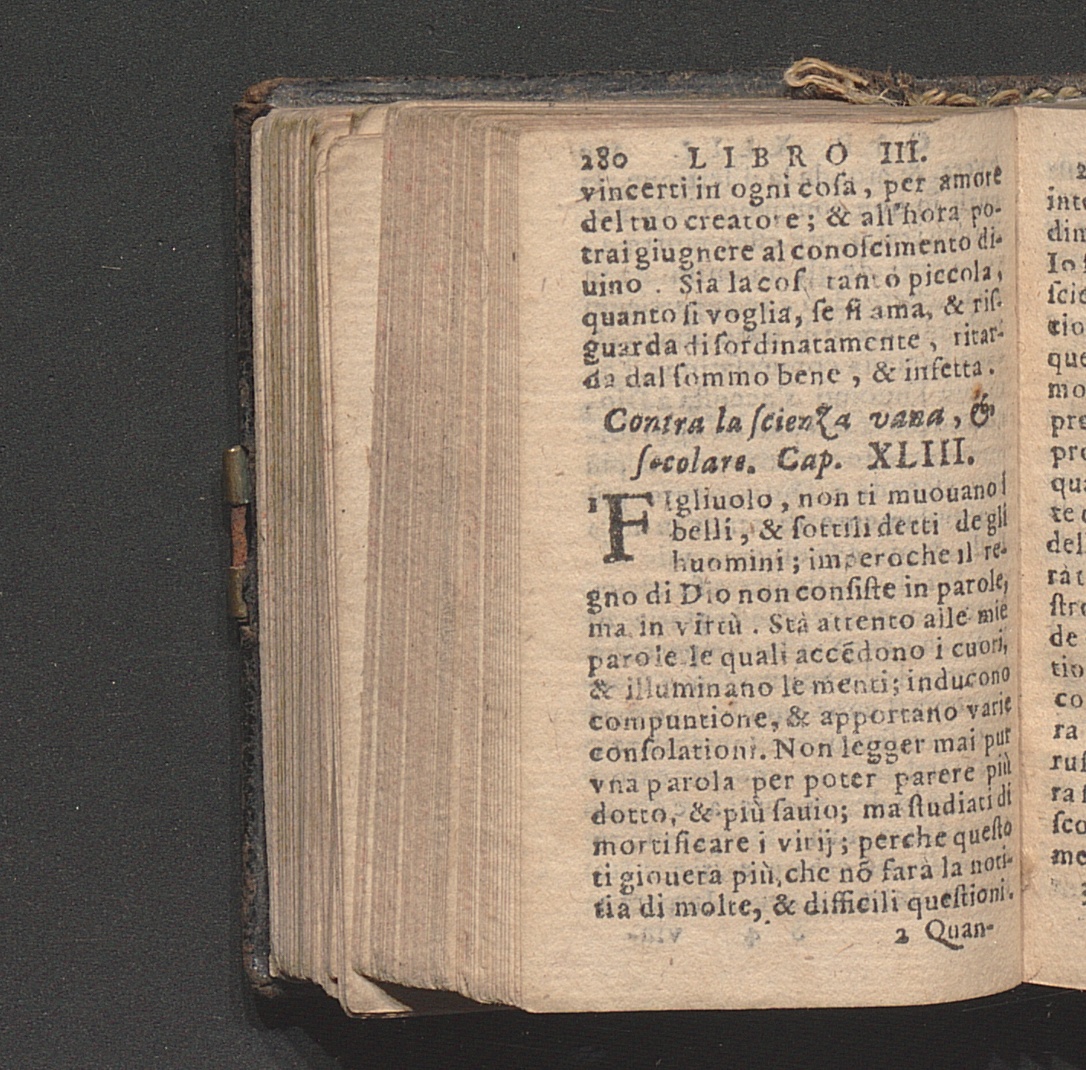 280 LIBRO III.
vincerti in ogni coſa, per amore
del tuo creatore; & all'hora po-
trai giugnere al conoſcimento di-
uino. Sia la coſa tanto piccola,
quanto ſi voglia, ſe ſi ama, & riſ-
guarda diſordinatamente, ritar-
da dal ſommo bene, & infetta.
Contra la ſcienza vana, &
ſecolare. Cap. XLIII.
1 FIgliuolo, non ti muouano i
belli, & ſottili detti degli
huomini; imperoche il re-
gno di Dio non conſiſte in parole,
ma in virtù. Stà attento alle mie
parole le quali accēdono i cuori,
& illuminano le menti; inducono
compuntione, & apportano varie
conſolationi. Non legger mai pur
vna parola per poter parere più
dotto, & più ſauio; ma ſtudiati di
mortificare i vitij; perche queſto
ti giouerà più, che nō farà la noti-
tia di molte, & difficili queſtioni.
2 Quan-
int
din
Io ſ
ſcie
tio
que
mo
pre
pre
qua
te
del
rà t
ſtr
de
tio
co
ra
ruſ
ra ſ
ſco
me